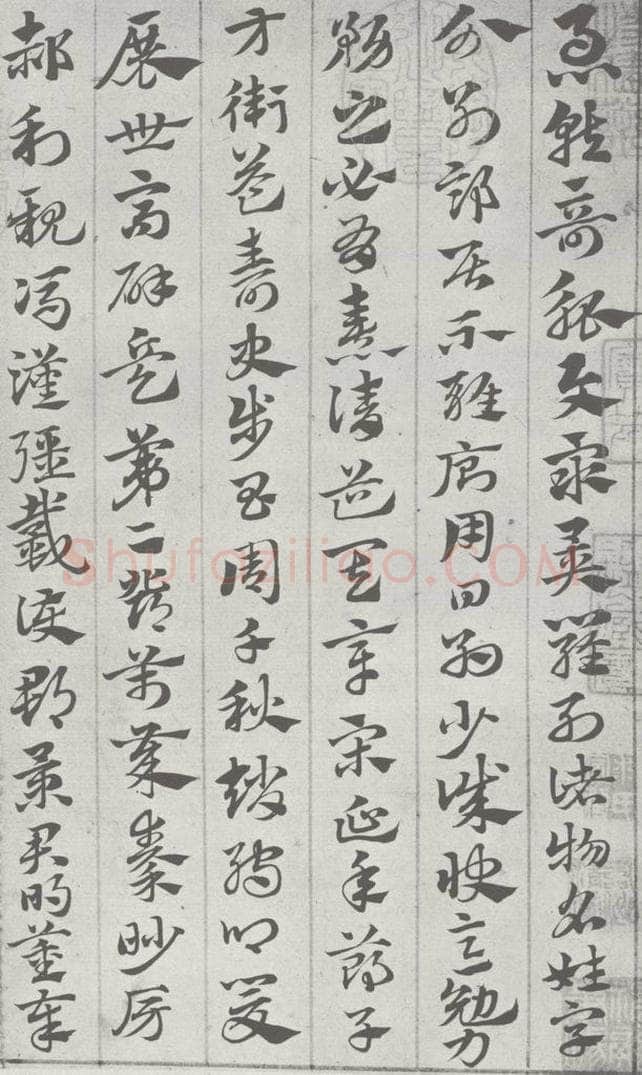 急就奇觚與衆異羅列諸物名姓字
分別部居不雜廁用日約少誠快意勉力
務之必有憙請道其章宋延年鄭子
方衛益壽史步昌周千秋趙孺卿爰
展世高辟兵第二鄧萬歲秦眇房
郝利親馮漢彊戴護郡景君明董奉
Shufaziliao.COM